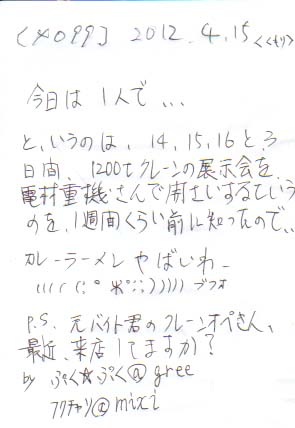 [No99] 2012.4.15 <くもり>
今日は1人で...
というのは、14,15,16と3
日間、1200tクレーンの展示会を、
電材重機さんで開さいするという
のを、1週間くらい前に知ったので、、
カレーラーメンやばいわー
ブフォ
P.S. 元バイト君のクレーンオペさん、
最近、来店してますか?
by ぷく☆ぷく@gree
フクチャリ@mixi